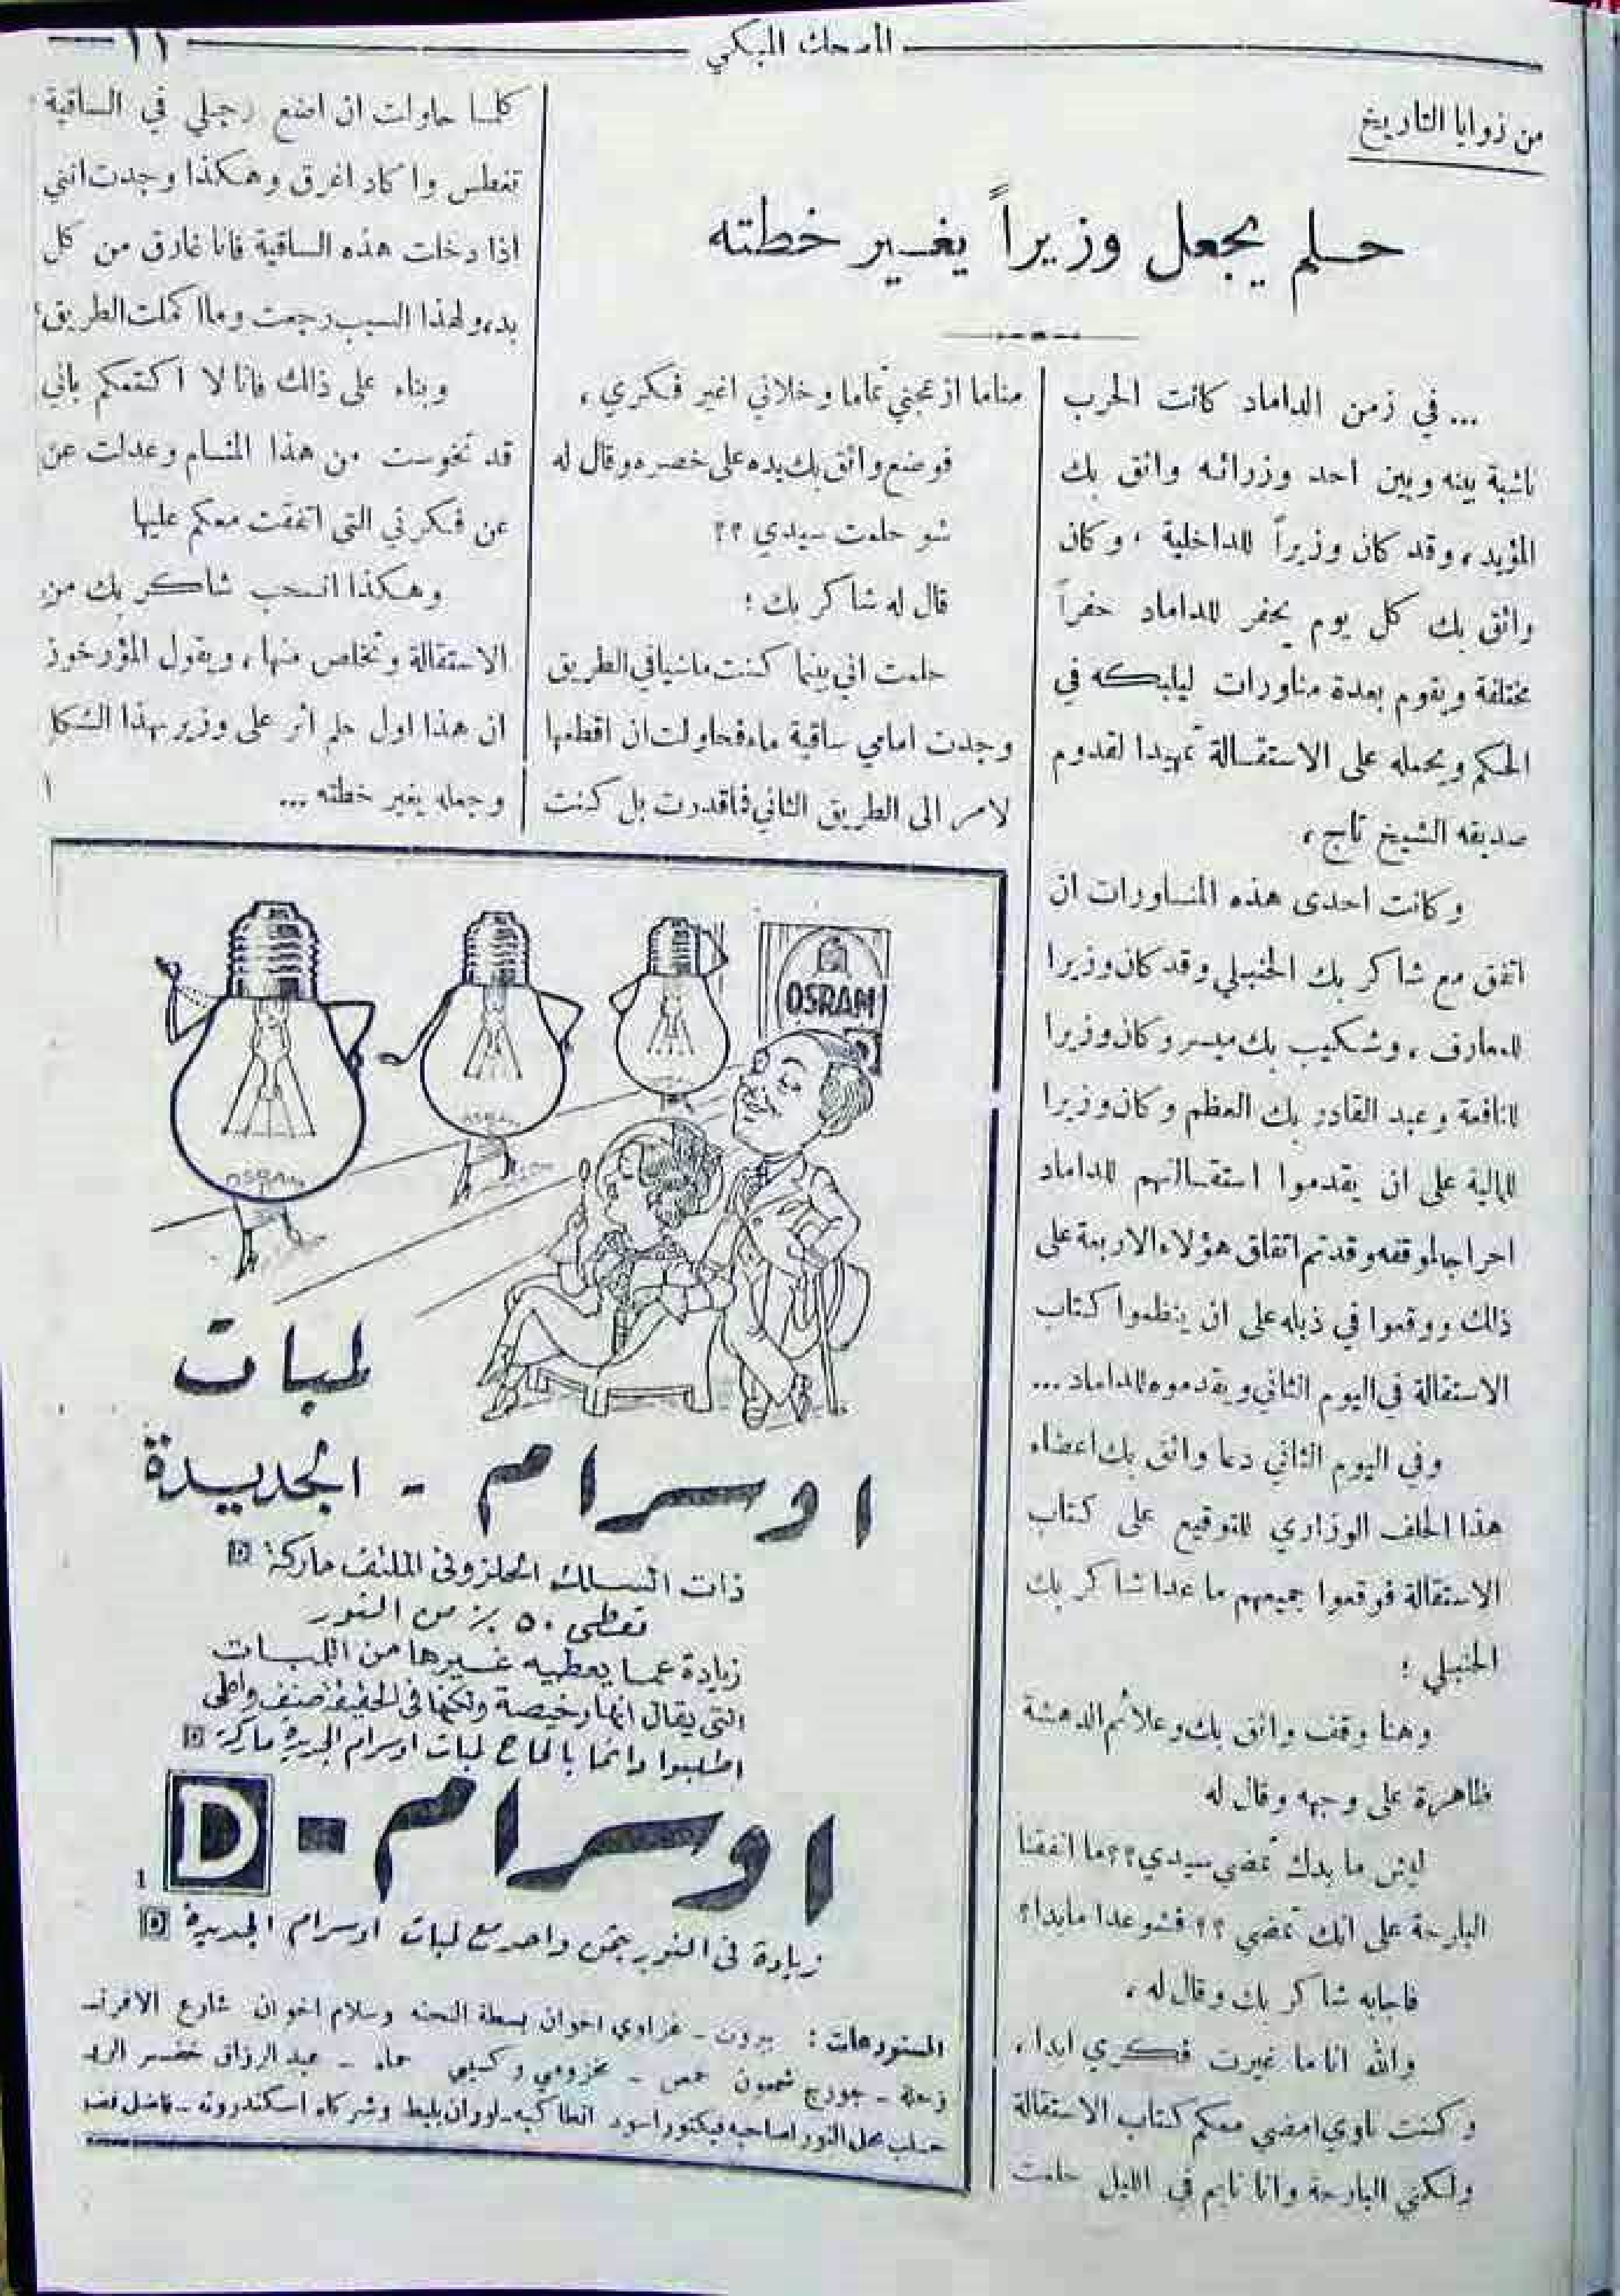 المضحك المبكي
١١
من زوايا التاريخ
حلم يجعل وزيراً يغير خطته
... في زمن الداماد كانت الحرب
ناشبة بينه وبين احد وزرائه واثق بك
المؤيد، وقد كان وزيراً للداخلية ، وكان
واثق بك كل يوم يحفر للداماد حفراً
مختلفة ويقوم بعدة مناورات ليلبكه في
الحكم ويحمله على الاستقالة تمهيدا لقدوم
صديقه الشيخ تاج ،
وكانت احدى هذه المناورات ان
اتفق مع شاكر بك الحنبلي وقد كان وزيرا
للمعارف ، وشكيب بك ميسر وكان وزيرا
للنافعة وعبد القادر بك العظم وكان وزيرا
للمالية على ان يقدموا استقالتهم للداماد
احراجا لموقفه وقد تم اتفاق هؤلاء الاربعة على
ذلك ووقعوا في ذيله على ان ينظموا كتاب
الاستقالة في اليوم الثاني ويقدموه للداماد ...
وفي اليوم الثاني دعا واثق بك اعضاء
هذا الحلف الوزاري للتوقيع على كتاب
الاستقالة فوقعوا جميعهم ما عدا شاكر بك
الحنبلي ؛
وهنا وقف واثق بك وعلائم الدهشة
ظاهرة على وجهه وقال له
ليش ما بدك تمضي سيدي؟؟ ما اتفقنا
البارحة على انك تمضي ؟؟ فشو عدا ما بدا؟
فاجابه شاكر بك وقال له ،
والله انا ما غيرت فكري ابدا ،
وكنت ناوي امضي معكم كتاب الاستقالة
ولكني البارحة وانا نايم في الليل حلمت
مناما ازعجني تماما وخلاني اغير فكري ،
فوضع واثق بك يده على خصره وقال له
شو حلمت سيدي ؟؟
قال له شاكر بك ؛
حلمت اني بينما كنت ماشيا في الطريق
وجدت امامي ساقية ماء فحاولت ان اقطعها
لامر الى الطريق الثاني فما قدرت بل كنت
كلما حاولت ان اضع رجلي في الساقية
تغطس واكاد اغرق وهكذا وجدت انني
اذا دخلت هذه الساقية فانا غارق من كل
بد، ولهذا السبب رجعت وما اكملت الطريق؛
وبناء على ذلك فانا لا اكتمكم باني
قد تخوست من هذا المنام وعدلت عن
عن فكرتي التي اتفقت معكم عليها
وهكذا انسحب شاكر بك من
الاستقالة وتخلص منها ، ويقول المؤرخون
ان هذا اول حلم اثر على وزير بهذا الشكل
وجعله يغير خطته ...
OSRAM
OSRAM
OSRAM
لمبات
اوسرام - الجديدة
ذات السلك الحلزوني الملتف ماركة D
تعطى ٥٠ ٪ من النور
زيادة عما يعطيه غيرها من اللمبات
التى يقال انها رخيصة ولكنها فى الحقيقة صنف واطى
اطلبوا دائما بالحاح لمبات اوسرام الجديدة ماركة D
اوسرام - D
1
زيادة فى النور بثمن واحد مع لمبات اوسرام الجديدة D
المستودعات : بيروت - غزاوي اخوان بسطة التحته وسلام اخوان شارع الافرنـ
زحلة - جورج شمعون حمص - مخزومي وكسيبي حماه - عبد الرزاق خضر
حلب محل النور لصاحبه فيكتور اسود انطاكيه - لوران بليط وشركاه اسكندرونه - فاضل